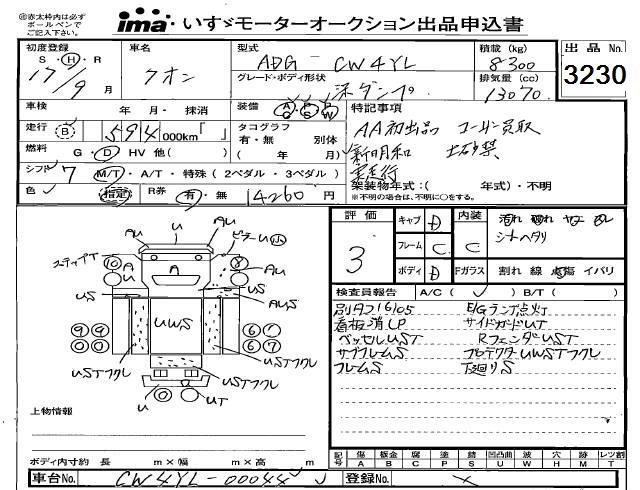 ㊟赤太枠内は必ず
ボールペンで
ご記入下さい。
ima いすゞモーターオークション出品申込書
初度登録 車名 型式 積載 (kg) 出品No.
S・H・R 17/9 月 クオン ADG - CW4YL 8300 3230
グレード・ボディ形状 排気量 (cc)
深ダンプ 13070
車検 年 月・ 抹消 装備 A/G P/S P/W 特記事項
走行 B 594 000km「 」 タコグラフ AA初出品 ユーザー買取
有・無 別体
燃料 G・D HV 他( ) ( 年 月) 新明和 土砂禁
シフト 7 M/T・A/T・特殊(2ペダル・3ペダル) 実走行
架装物年式:( 年式)・不明
色 指定 R券 有・無 14260 円 ※不明の場合は、不明に○をする。
評価 キャブ D 内装
3 フレーム C C シートヘタリ
ボディ D Fガラス 割れ 線 点傷 イバリ
U
AU AU ピラーU小
ステップT 10 A A 8 AU
US UWS AUS
9 9 6 6
USTフクレ USTフクレ
USTフクレ
U UT
検査員報告 A/C( ✓ ) B/T( )
別タコ16/05 E/Gランプ点灯
看板消LP サイドガードUT
ベッセルUST RフェンダUST
サブフレームS プロテクターUWSTフクレ
フレームS 下廻りS
上物情報
ボディ内寸約 長 m×幅 m×高 m
記号 傷 A 板金 B 腐 C 塗 P 錆 S 凹凸曲 U 波 W 穴 H 跡 M レツ割 T
車台No. CW4YL-00044 登録No.